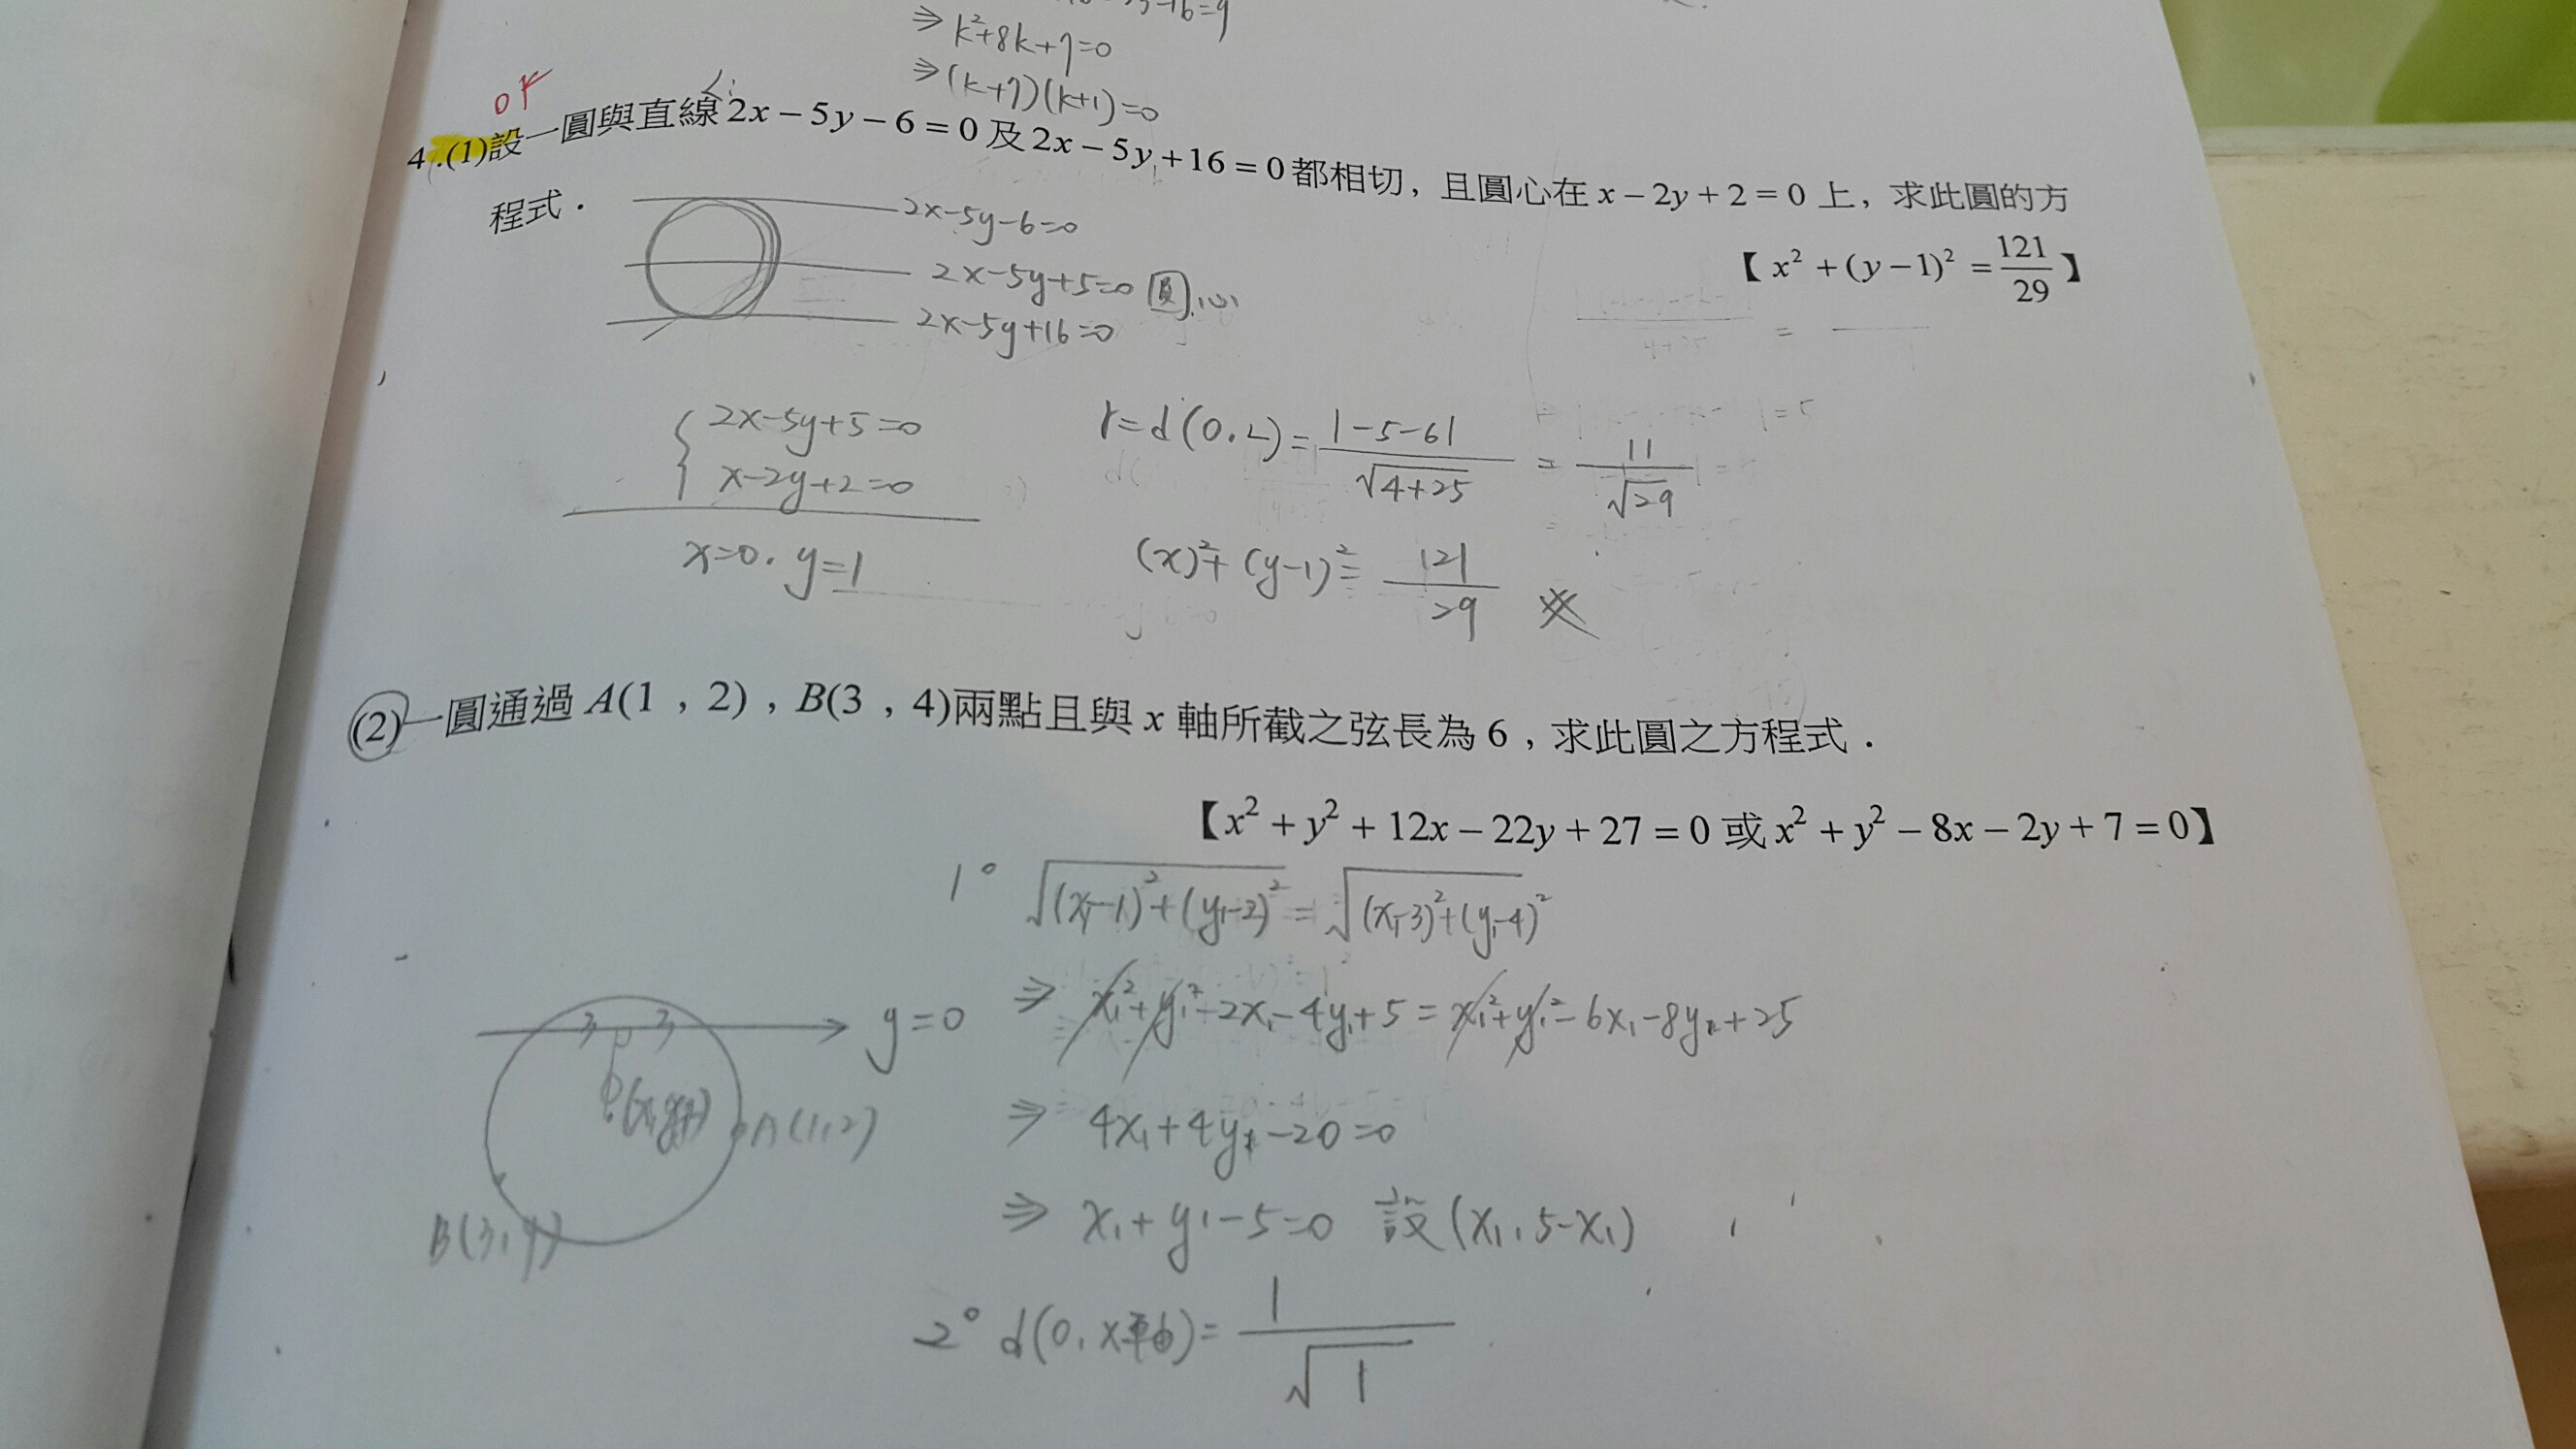 ⇒ k²+8k+7=0
⇒ (k+7)(k+1)=0
4.(1)設一圓與直線 2x − 5y − 6 = 0 及 2x − 5y + 16 = 0 都相切, 且圓心在 x − 2y + 2 = 0 上, 求此圓的方
程式.
【 x² + (y − 1)² = 121/29 】
2x-5y-6=0
2x-5y+5=0 圓心
2x-5y+16=0
2x-5y+5=0
x-2y+2=0
x=0. y=1
r=d(0.L)= |-5-6| / √4+25 = 11 / √29
(x)²+(y-1)²= 121/29
(2)一圓通過 A(1, 2), B(3, 4)兩點且與 x 軸所截之弦長為 6, 求此圓之方程式.
【x² + y² + 12x − 22y + 27 = 0 或 x² + y² − 8x − 2y + 7 = 0】
1° √(x₁-1)²+(y₁-2)² = √(x₁-3)²+(y₁-4)²
⇒ x₁²+y₁²-2x₁-4y₁+5 = x₁²+y₁²-6x₁-8y₁+25
3 3 y=0
A(1,2)
B(3,4)
⇒ 4x₁+4y₁-20=0
⇒ x₁+y₁-5=0 設(x₁, 5-x₁)
2° d(0, x軸)= | / √1